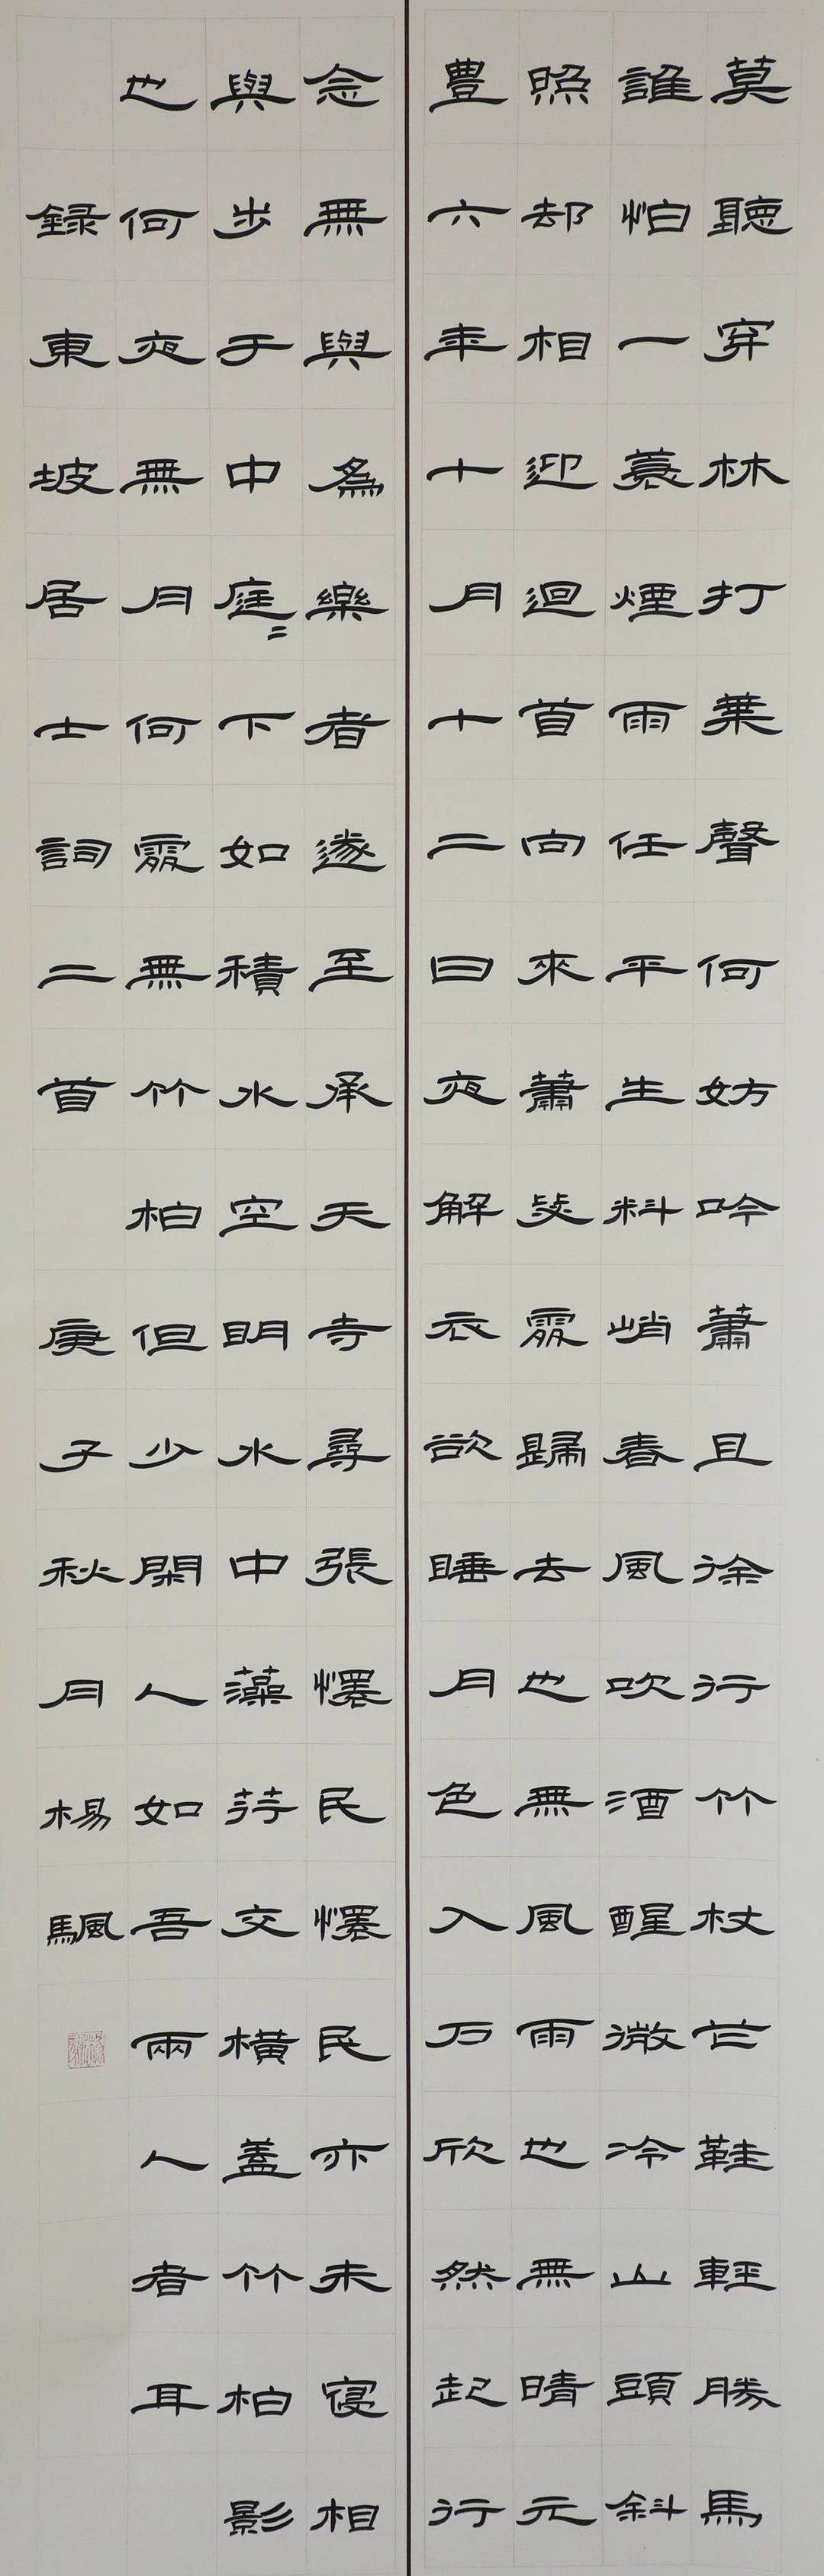 莫聽穿林打葉聲何妨吟蕭且徐行竹杖芒鞋輕勝馬
誰怕一蓑煙雨任平生料峭春風吹酒醒微冷山頭斜
照却相迎迴首向來蕭瑟處歸去也無風雨也無晴元
豊六年十月十二日夜解衣欲睡月色入戶欣然起行
念無與為樂者遂至承天寺尋張懷民懷民亦未寑相
與步于中庭〻下如積水空明水中藻荇交橫蓋竹柏影
也何夜無月何處無竹柏但少閑人如吾兩人者耳
録東坡居士詞二首 庚子秋月楊颿